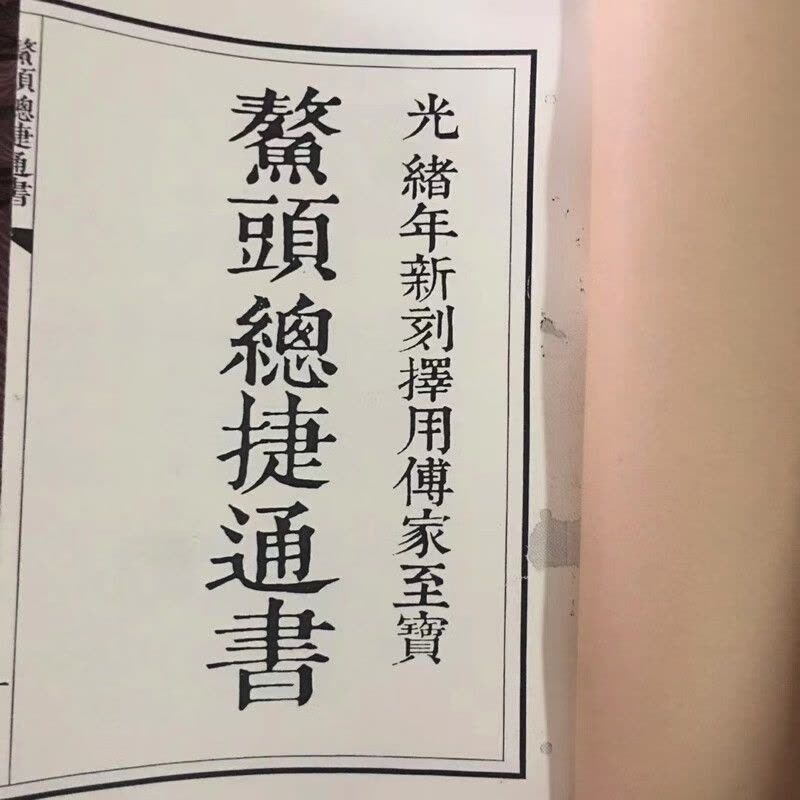 光緒年新刻擇用傅家至寶
鰲頭總捷通書
鰲頭總捷通書
一